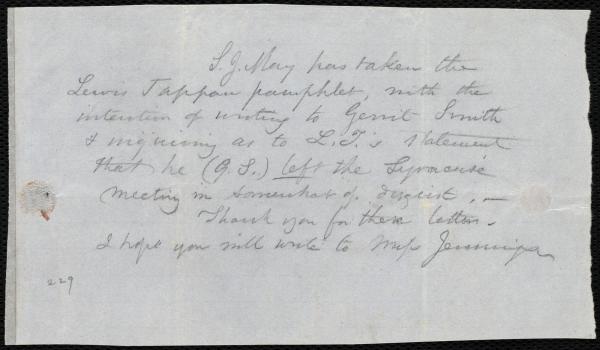 S. J. May has taken the
Lewis Tappan pamphlet, with the
intention of writing to Gerrit Smith
& inquiring as to L. T.'s statement
that he (G. S.,) left the Syracuse
meeting in somewhat of disgust. —
Thank you for these letters -
I hope you will write to Miss Jennings
229